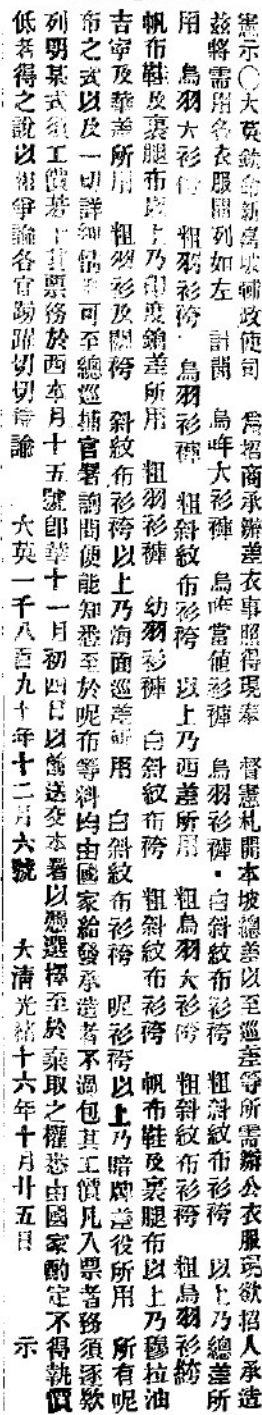 憲示○大英欽命新嘉坡輔政使司　為招商承辦差衣事照得現奉　督憲札開本坡總差以至巡差等所需辦公衣服現欲招人承造
茲將需用各衣服開列如左　計開　烏咩大衫褲　烏咩當值衫褲　烏羽衫褲・白斜紋布衫袴　粗斜紋布衫袴　以上乃總差所
用　烏羽大衫袴　粗羽衫袴　烏羽衫褲　粗斜紋布衫袴　以上乃西差所用　粗烏羽大衫袴　粗斜紋布衫袴　粗烏羽衫袴
帆布鞋及裹腿布以上乃印度鎗差所用　粗羽衫褲　幼羽衫褲　白斜紋布袴　粗斜紋布衫袴　帆布鞋及裹腿布以上乃穆拉油
吉寧及華差所用　粗羽衫及闊袴　斜紋布衫袴以上乃海面巡差所用　白斜紋布衫袴　呢衫袴以上乃賠牌差役所用　所有呢
布之式以及一切詳細情形可至總巡捕官署詢問便能知悉至於呢布等料均由國家給發承造者不過包其工價凡入票者務須逐款
列明某式須工價若干其票務於西本月十五號即華十一月初四日以前送交本署以憑選擇至於棄取之權悉由國家酌定不得執價
低者得之說以相爭論各宜踴躍切切特諭　大英一千八百九十年十二月六號　大清光緒十六年十月廿五日　示